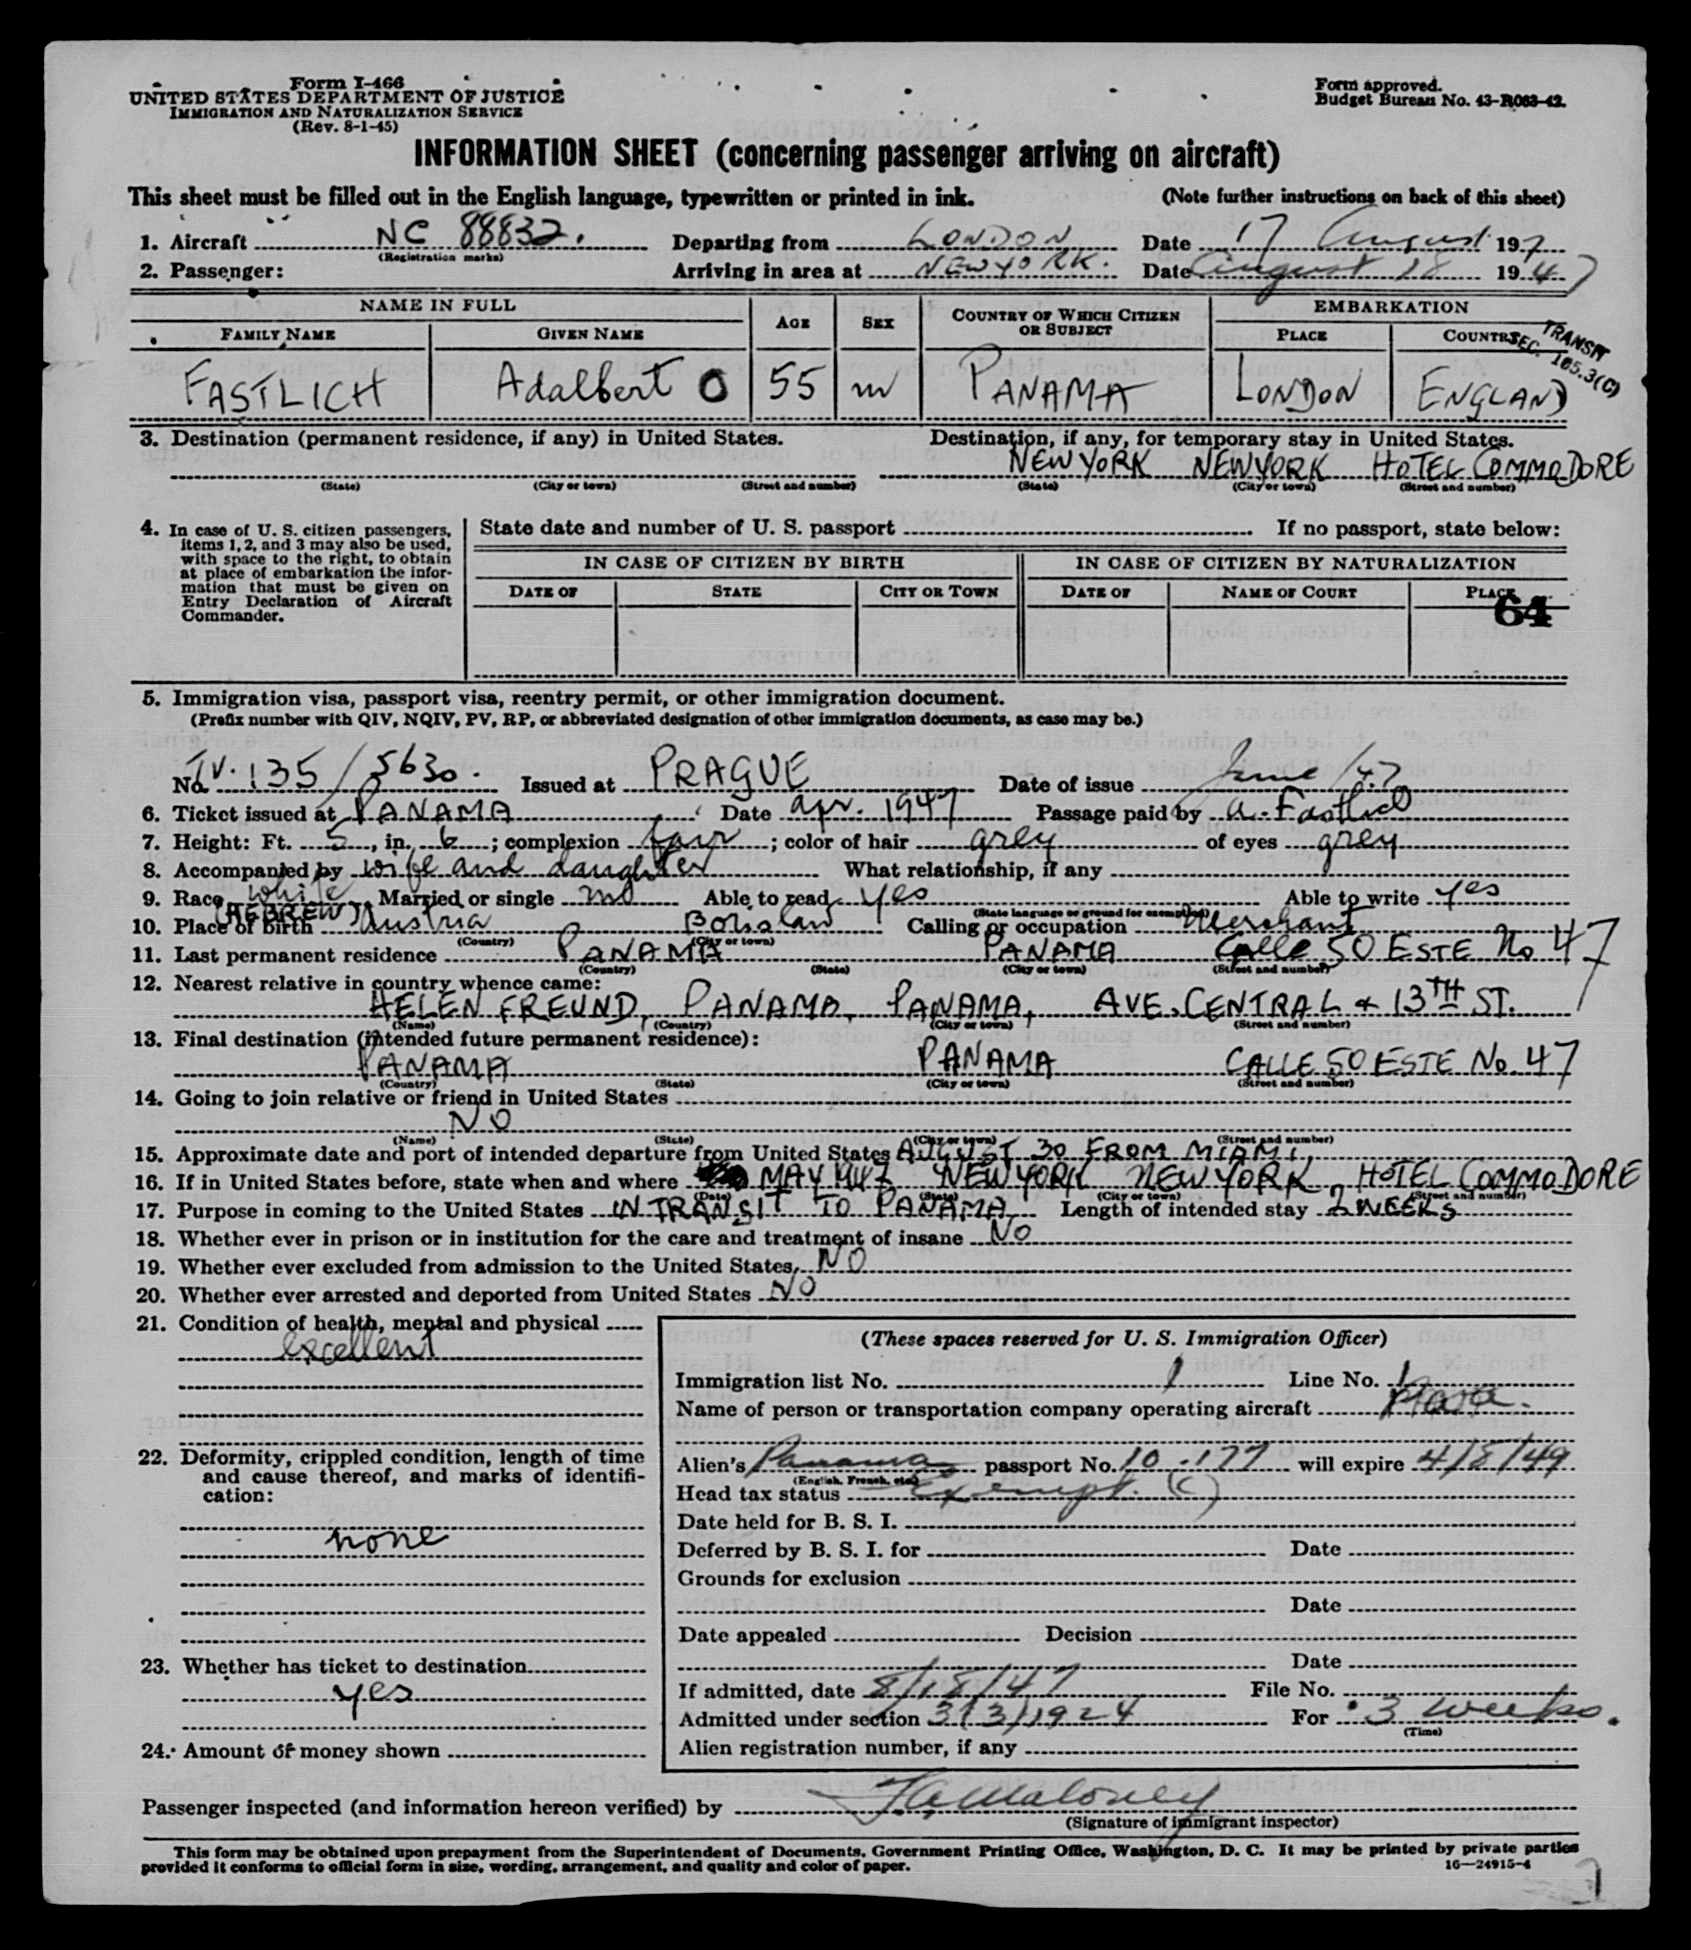 Form I-466
UNITED STATES DEPARTMENT OF JUSTICE
IMMIGRATION AND NATURALIZATION SERVICE
(Rev. 8-1-45)
Form approved.
Budget Bureau No. 43-R063-42.
INFORMATION SHEET (concerning passenger arriving on aircraft)
This sheet must be filled out in the English language, typewritten or printed in ink. (Note further instructions on back of this sheet)
1. Aircraft NC 88832. Departing from LONDON Date 17 August 197
(Registration marks)
2. Passenger: Arriving in area at NEW YORK. Date August 18 1947
NAME IN FULL AGE SEX COUNTRY OF WHICH CITIZEN OR SUBJECT EMBARKATION
FAMILY NAME GIVEN NAME PLACE COUNTRY
TRANSIT
SEC. 165.3(C)
FASTLICH Adalbert O 55 m PANAMA LONDON ENGLAND
3. Destination (permanent residence, if any) in United States. Destination, if any, for temporary stay in United States.
NEW YORK NEW YORK HOTEL COMMODORE
(State) (City or town) (Street and number) (State) (City or town) (Street and number)
4. In case of U. S. citizen passengers, items 1, 2, and 3 may also be used, with space to the right, to obtain at place of embarkation the information that must be given on Entry Declaration of Aircraft Commander.
State date and number of U. S. passport If no passport, state below:
IN CASE OF CITIZEN BY BIRTH IN CASE OF CITIZEN BY NATURALIZATION
DATE OF STATE CITY OR TOWN DATE OF NAME OF COURT PLACE
64
5. Immigration visa, passport visa, reentry permit, or other immigration document.
(Prefix number with QIV, NQIV, PV, RP, or abbreviated designation of other immigration documents, as case may be.)
No. TV. 135/5630. Issued at PRAGUE Date of issue June /47
6. Ticket issued at PANAMA Date apr. 1947 Passage paid by A. Fastlich
7. Height: Ft. 5, in. 6; complexion fair; color of hair grey of eyes grey
8. Accompanied by wife and daughter What relationship, if any
9. Race white Married or single md Able to read yes Able to write yes
(HEBREW) (State language or ground for exemption)
10. Place of birth Austria Calling or occupation Merchant
(Country) (City or town)
11. Last permanent residence PANAMA PANAMA Calle 50 ESTE No 47
(Country) (State) (City or town) (Street and number)
12. Nearest relative in country whence came:
HELEN FREUND, PANAMA, PANAMA, AVE. CENTRAL & 13TH ST.
(Name) (Country) (City or town) (Street and number)
13. Final destination (intended future permanent residence):
PANAMA PANAMA CALLE 50 ESTE No. 47
(Country) (State) (City or town) (Street and number)
14. Going to join relative or friend in United States
NO
(Name) (State) (City or town) (Street and number)
15. Approximate date and port of intended departure from United States AUGUST 30 FROM MIAMI,
16. If in United States before, state when and where MAY 1947 NEW YORK NEW YORK HOTEL COMMODORE
(Date) (State) (City or town) (Street and number)
17. Purpose in coming to the United States IN TRANSIT TO PANAMA Length of intended stay 2 WEEKS
18. Whether ever in prison or in institution for the care and treatment of insane NO
19. Whether ever excluded from admission to the United States. NO
20. Whether ever arrested and deported from United States NO
21. Condition of health, mental and physical
excellent
22. Deformity, crippled condition, length of time and cause thereof, and marks of identification:
none
23. Whether has ticket to destination
yes
24. Amount of money shown
(These spaces reserved for U. S. Immigration Officer)
Immigration list No. 1 Line No. 1
Name of person or transportation company operating aircraft
Alien's Panama passport No. 10.177 will expire 4/8/49
(English, French, etc.)
Head tax status Exempt. (C)
Date held for B. S. I.
Deferred by B. S. I. for Date
Grounds for exclusion
Date
Date appealed Decision
Date
If admitted, date 8/18/47 File No.
Admitted under section 3(3)1924 For 3 weeks.
(Time)
Alien registration number, if any
Passenger inspected (and information hereon verified) by
(Signature of immigrant inspector)
This form may be obtained upon prepayment from the Superintendent of Documents, Government Printing Office, Washington, D. C. It may be printed by private parties
provided it conforms to official form in size, wording, arrangement, and quality and color of paper. 16—24915-4